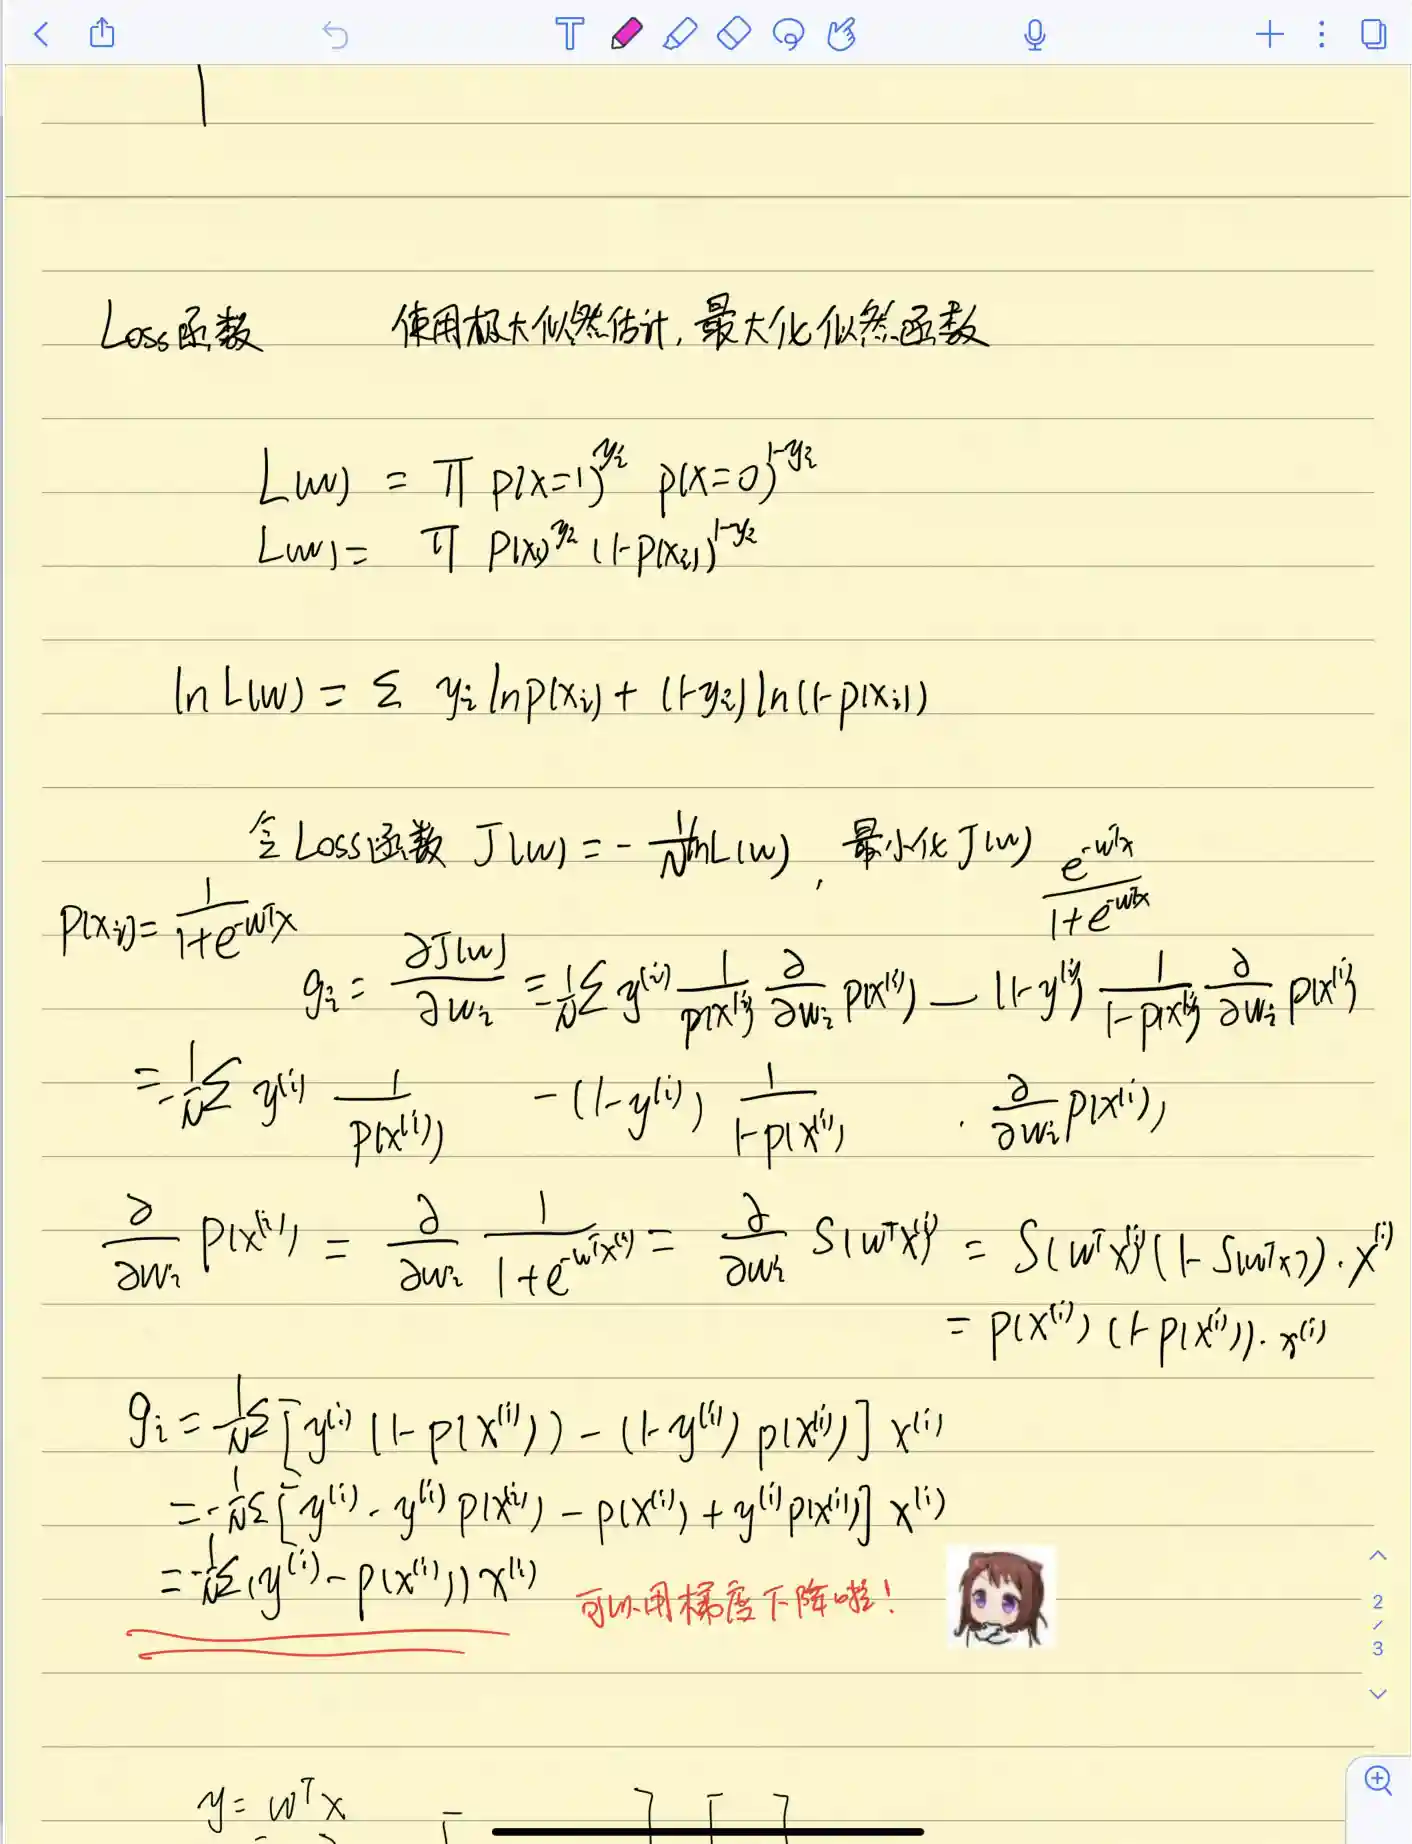 Loss函数 使用极大似然估计, 最大化似然函数
L(w) = π p(x=1)^{y_i} p(x=0)^{1-y_i}
L(w) = π p(x_i)^{y_i} (1-p(x_i))^{1-y_i}
ln L(w) = Σ y_i ln p(x_i) + (1-y_i) ln(1-p(x_i))
令Loss函数 J(w) = -\frac{1}{N} ln L(w), 最小化 J(w) \frac{e^{-w^T x}}{1+e^{-w^T x}}
p(x_i) = \frac{1}{1+e^{-w^T x}}
g_i = \frac{∂J(w)}{∂w_i} = \frac{1}{N} Σ y^{(i)} \frac{1}{p(x^{(i)})} \frac{∂}{∂w_i} p(x^{(i)}) - (1-y^{(i)}) \frac{1}{1-p(x^{(i)})} \frac{∂}{∂w_i} p(x^{(i)})
= -\frac{1}{N} Σ y^{(i)} \frac{1}{p(x^{(i)})} - (1-y^{(i)}) \frac{1}{1-p(x^{(i)})} · \frac{∂}{∂w_i} p(x^{(i)})
\frac{∂}{∂w_i} p(x^{(i)}) = \frac{∂}{∂w_i} \frac{1}{1+e^{-w^T x^{(i)}}} = \frac{∂}{∂w_i} S(w^T x^{(i)}) = S(w^T x^{(i)}) (1-S(w^T x)) · x^{(i)}
= p(x^{(i)}) (1-p(x^{(i)})) · x^{(i)}
g_i = -\frac{1}{N} Σ [y^{(i)} (1-p(x^{(i)})) - (1-y^{(i)}) p(x^{(i)})] x^{(i)}
= -\frac{1}{N} Σ [y^{(i)} - y^{(i)} p(x^{(i)}) - p(x^{(i)}) + y^{(i)} p(x^{(i)})] x^{(i)}
= -\frac{1}{N} Σ (y^{(i)} - p(x^{(i)})) x^{(i)} 可以用梯度下降啦!
2
/
3
y = w^T x